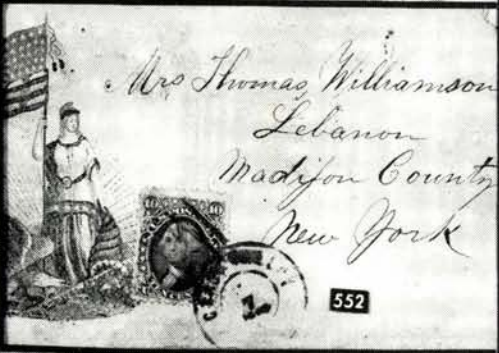 Mrs Thomas Williamson
Lebanon
Madison County
New York
10 10
552